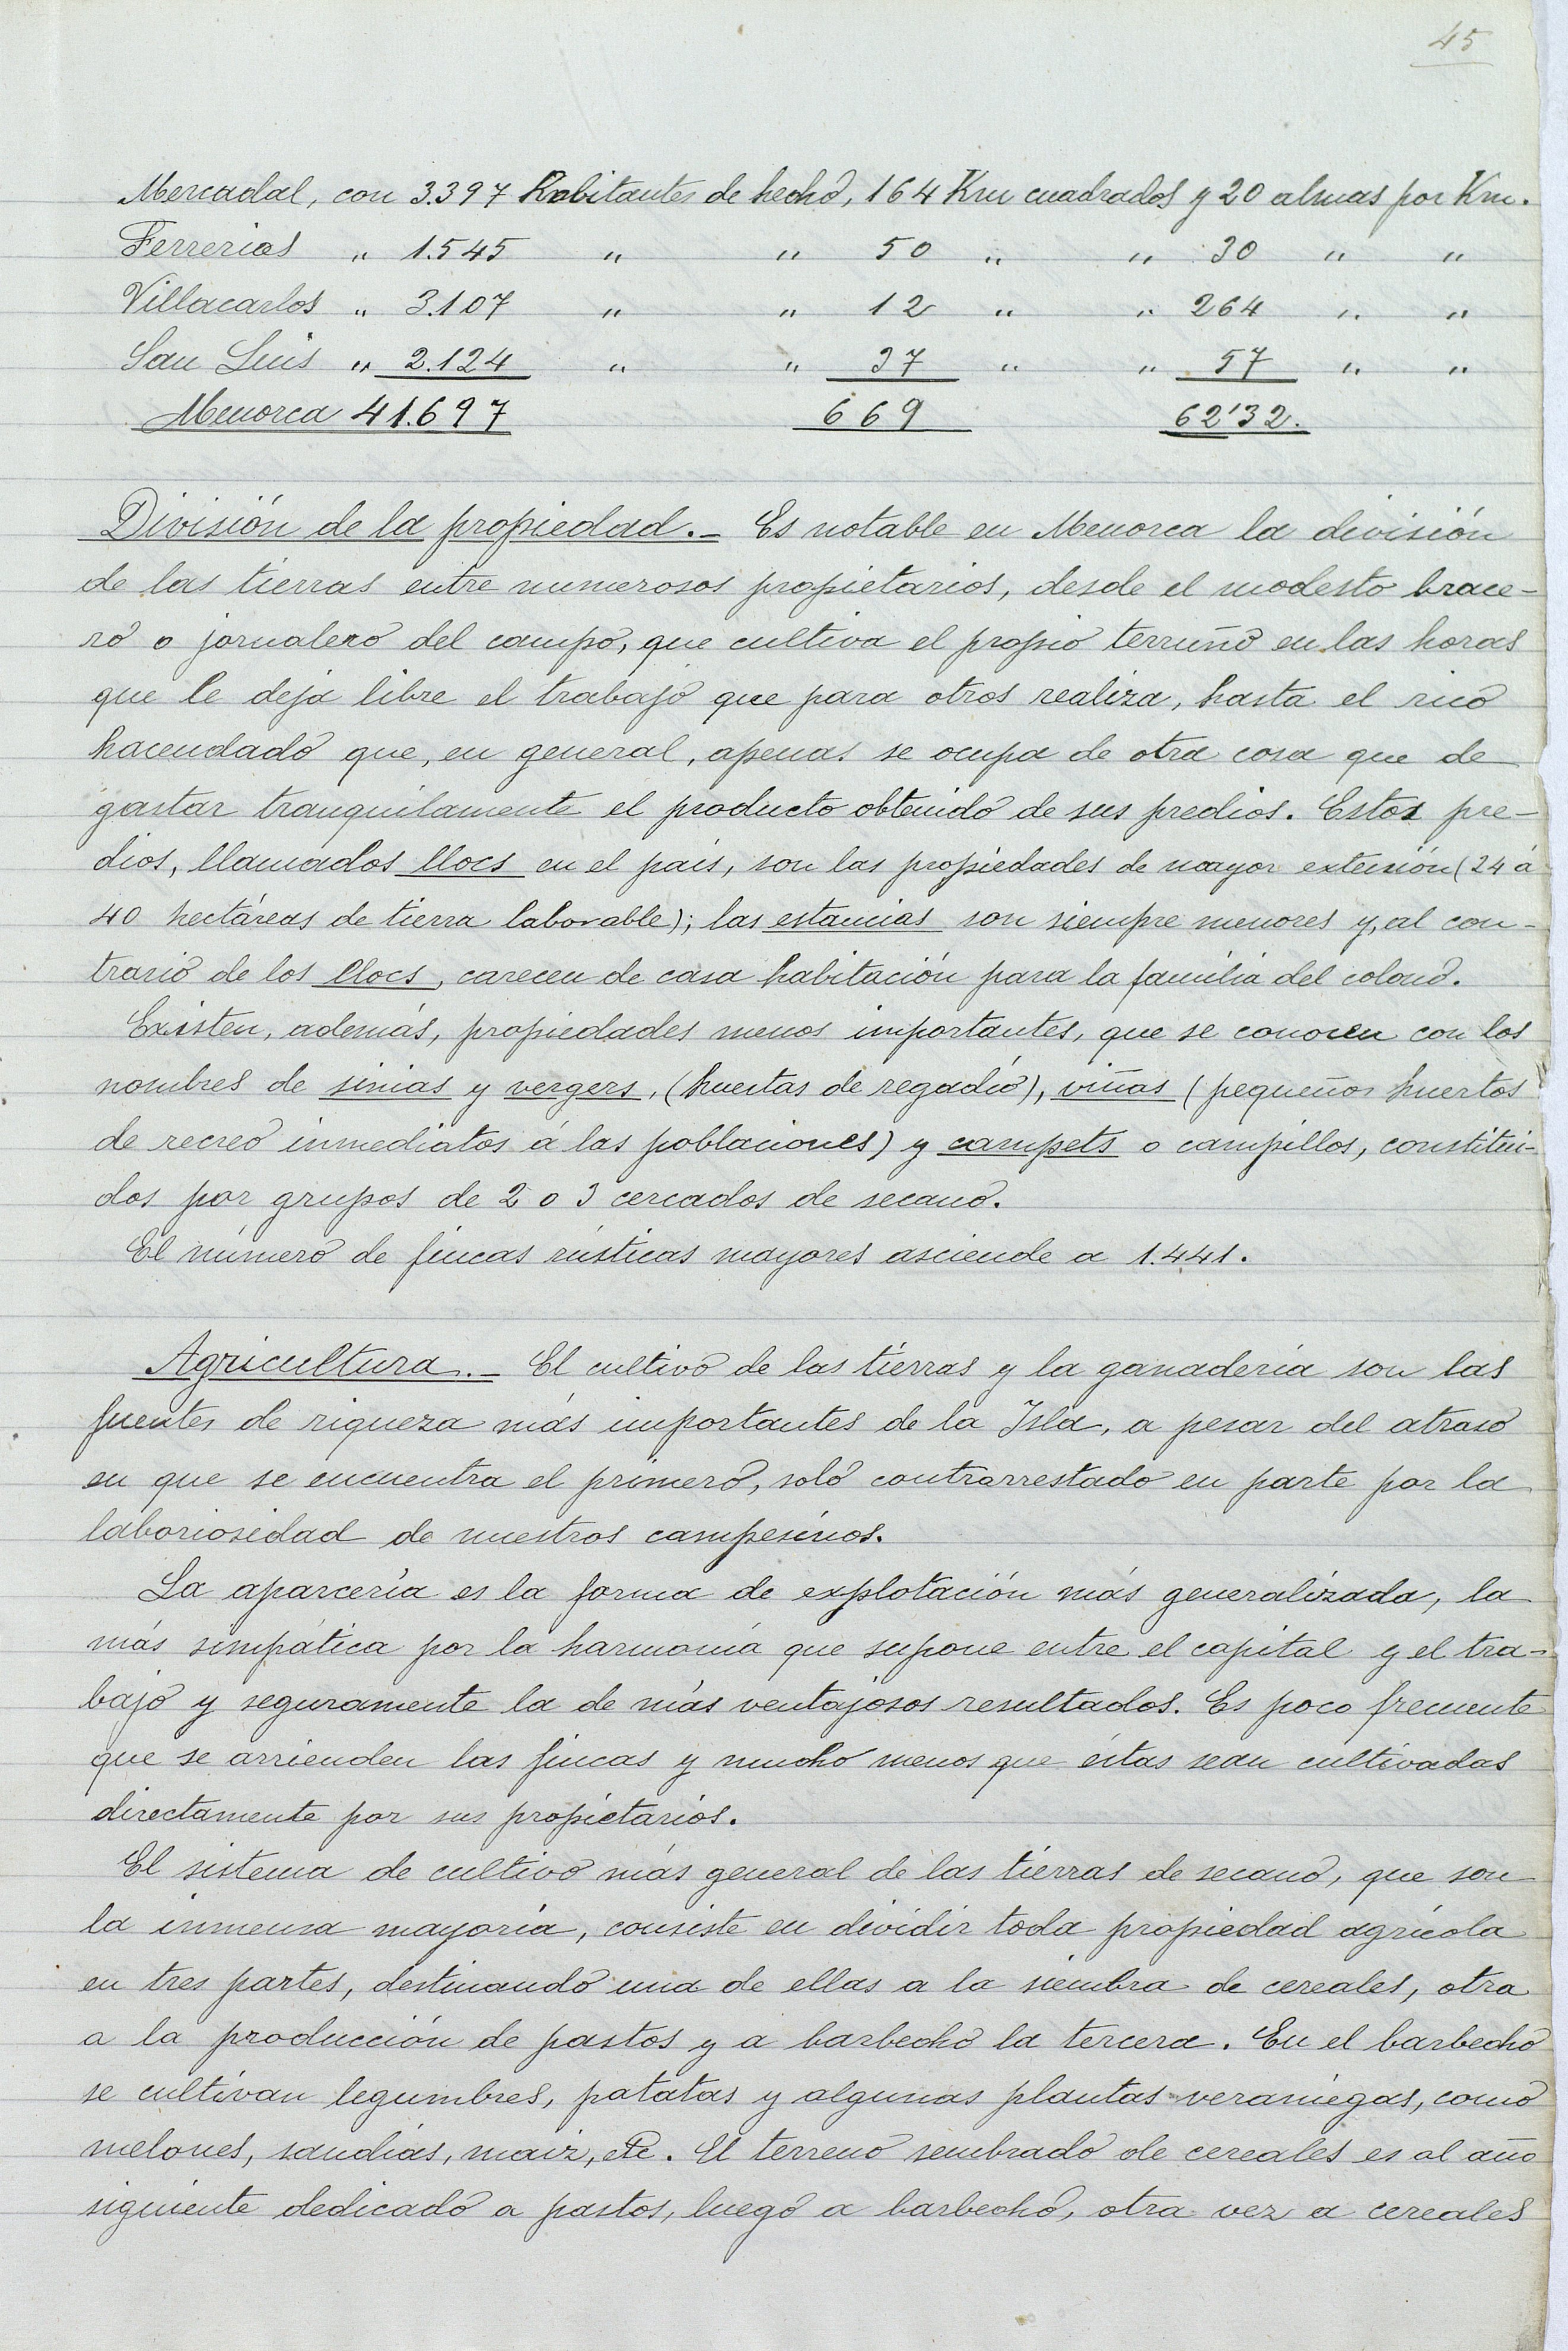 45
Mercadal, con 3.397 habitantes de hecho, 164 Km cuadrados y 20 almas por Km.
Ferrerias „ 1.545 „ „ 50 „ „ 30 „ „
Villacarlos „ 3.107 „ „ 12 „ „ 264 „ „
San Luis „ 2.124 „ „ 37 „ „ 57 „ „
Menorca 41.697 669 62'32.
División de la propiedad.- Es notable en Menorca la división
de las tierras entre numerosos propietarios, desde el modesto brace-
ro o jornalero del campo, que cultiva el propio terruño en las horas
que le deja libre el trabajo que para otros realiza, hasta el rico
hacendado que, en general, apenas se ocupa de otra cosa que de
gastar tranquilamente el producto obtenido de sus predios. Estos pre-
dios, llamados llocs en el país, son las propiedades de mayor extensión (24 á
40 hectáreas de tierra laborable); las estancias son siempre menores y, al con-
trario de los llocs, carecen de casa habitación para la familia del colono.
Existen, además, propiedades menos importantes, que se conocen con los
nombres de sinias y vergers, (huertas de regadío), viñas (pequeños huertos
de recreo inmediatos á las poblaciones) y campets o campillos, constitui-
dos por grupos de 2 o 3 cercados de secano.
El número de fincas rústicas mayores asciende a 1.441.
Agricultura.- El cultivo de las tierras y la ganadería son las
fuentes de riqueza más importantes de la Isla, a pesar del atraso
en que se encuentra el primero, solo contrarrestado en parte por la
laboriosidad de nuestros campesinos.
La aparcería es la forma de explotación más generalizada, la
más simpática por la harmonía que supone entre el capital y el tra-
bajo y seguramente la de más ventajosos resultados. Es poco frecuente
que se arrienden las fincas y mucho menos que éstas sean cultivadas
directamente por sus propietarios.
El sistema de cultivo más general de las tierras de secano, que son
la inmensa mayoría, consiste en dividir toda propiedad agrícola
en tres partes, destinando una de ellas a la siembra de cereales, otra
a la producción de pastos y a barbecho la tercera. En el barbecho
se cultivan legumbres, patatas y algunas plantas veraniegas, como
melones, sandías, maiz, etc. El terreno sembrado de cereales es al año
siguiente dedicado a pastos, luego a barbecho, otra vez a cereales